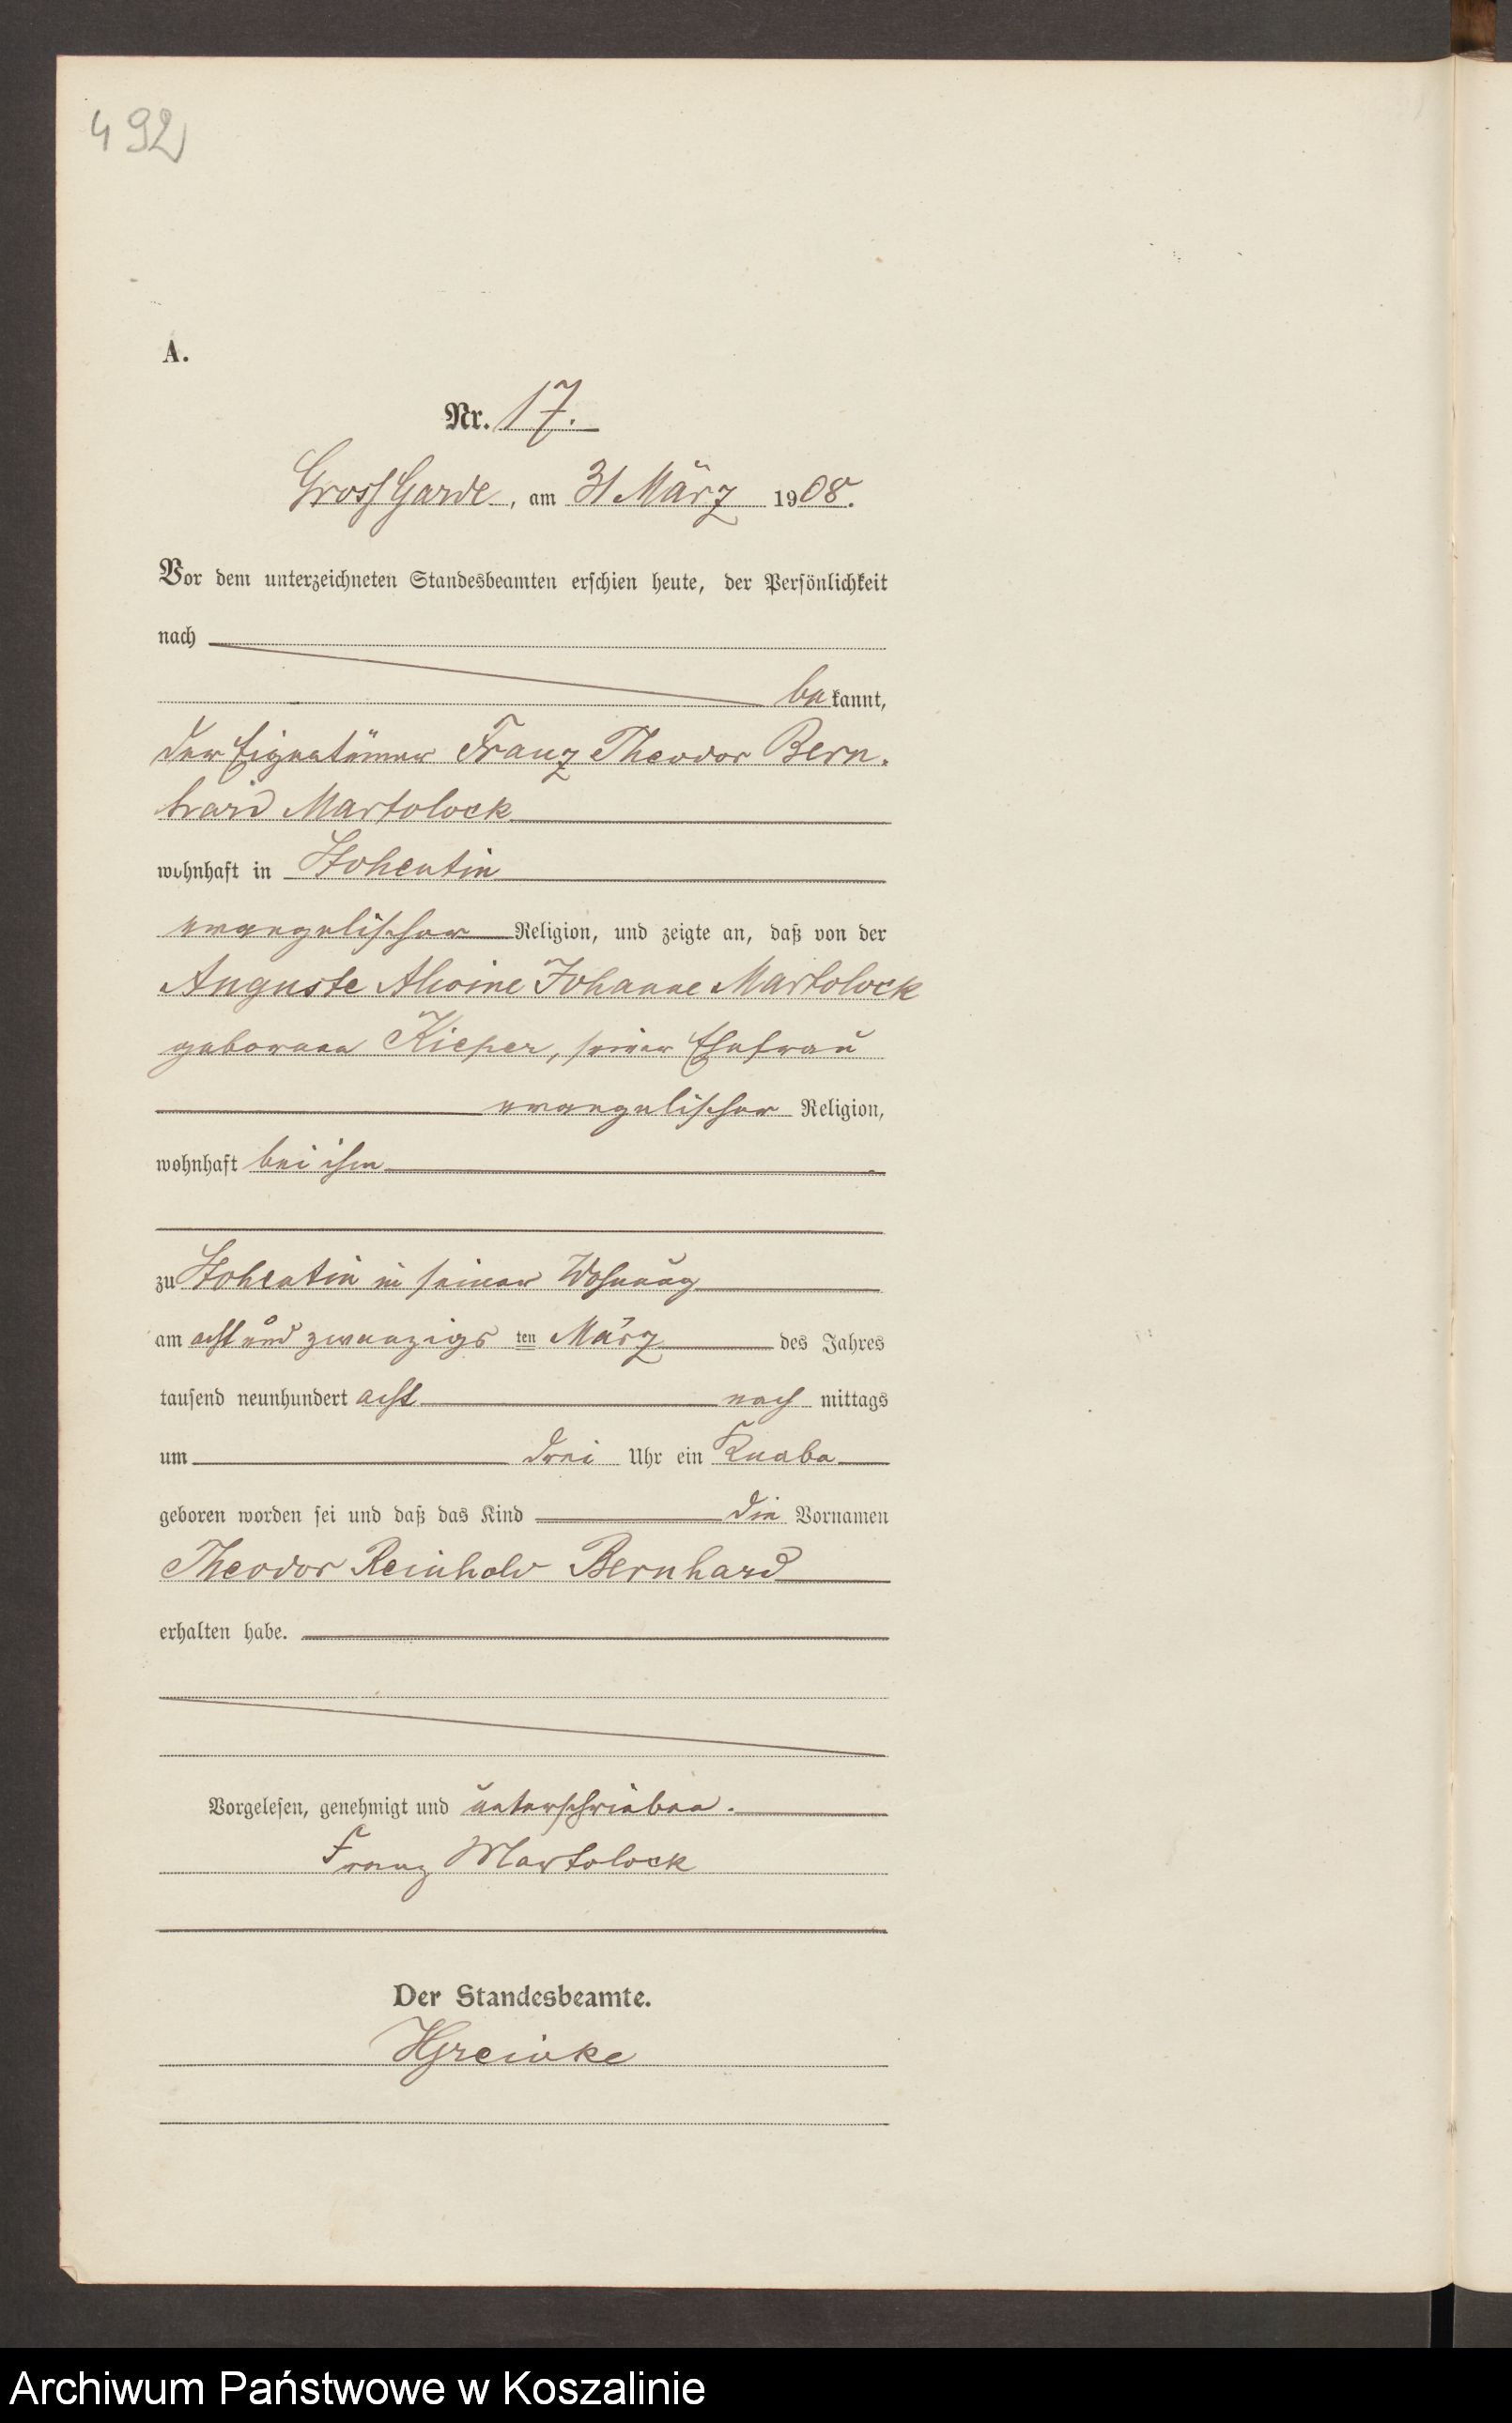 492
A.
Nr. 17.
Gross Garde, am 31 März 1908.
Vor dem unterzeichneten Standesbeamten erschien heute, der Persönlichkeit
nach
bekannt,
der Eigentümer Franz Theodor Bern-
hard Martolock
wohnhaft in Stohentin
evangelischer Religion, und zeigte an, daß von der
Auguste Alwine Johanne Martolock
geborenen Kieper, seiner Ehefrau
evangelischer Religion,
wohnhaft bei ihm
zu Stohentin in seiner Wohnung
am acht und zwanzigs ten März des Jahres
tausend neunhundert acht nach mittags
um drei Uhr ein Knabe
geboren worden sei und daß das Kind die Vornamen
Theodor Reinhold Bernhard
erhalten habe.
Vorgelesen, genehmigt und unterschrieben.
Franz Martolock
Der Standesbeamte.
Archiwum Państwowe w Koszalinie